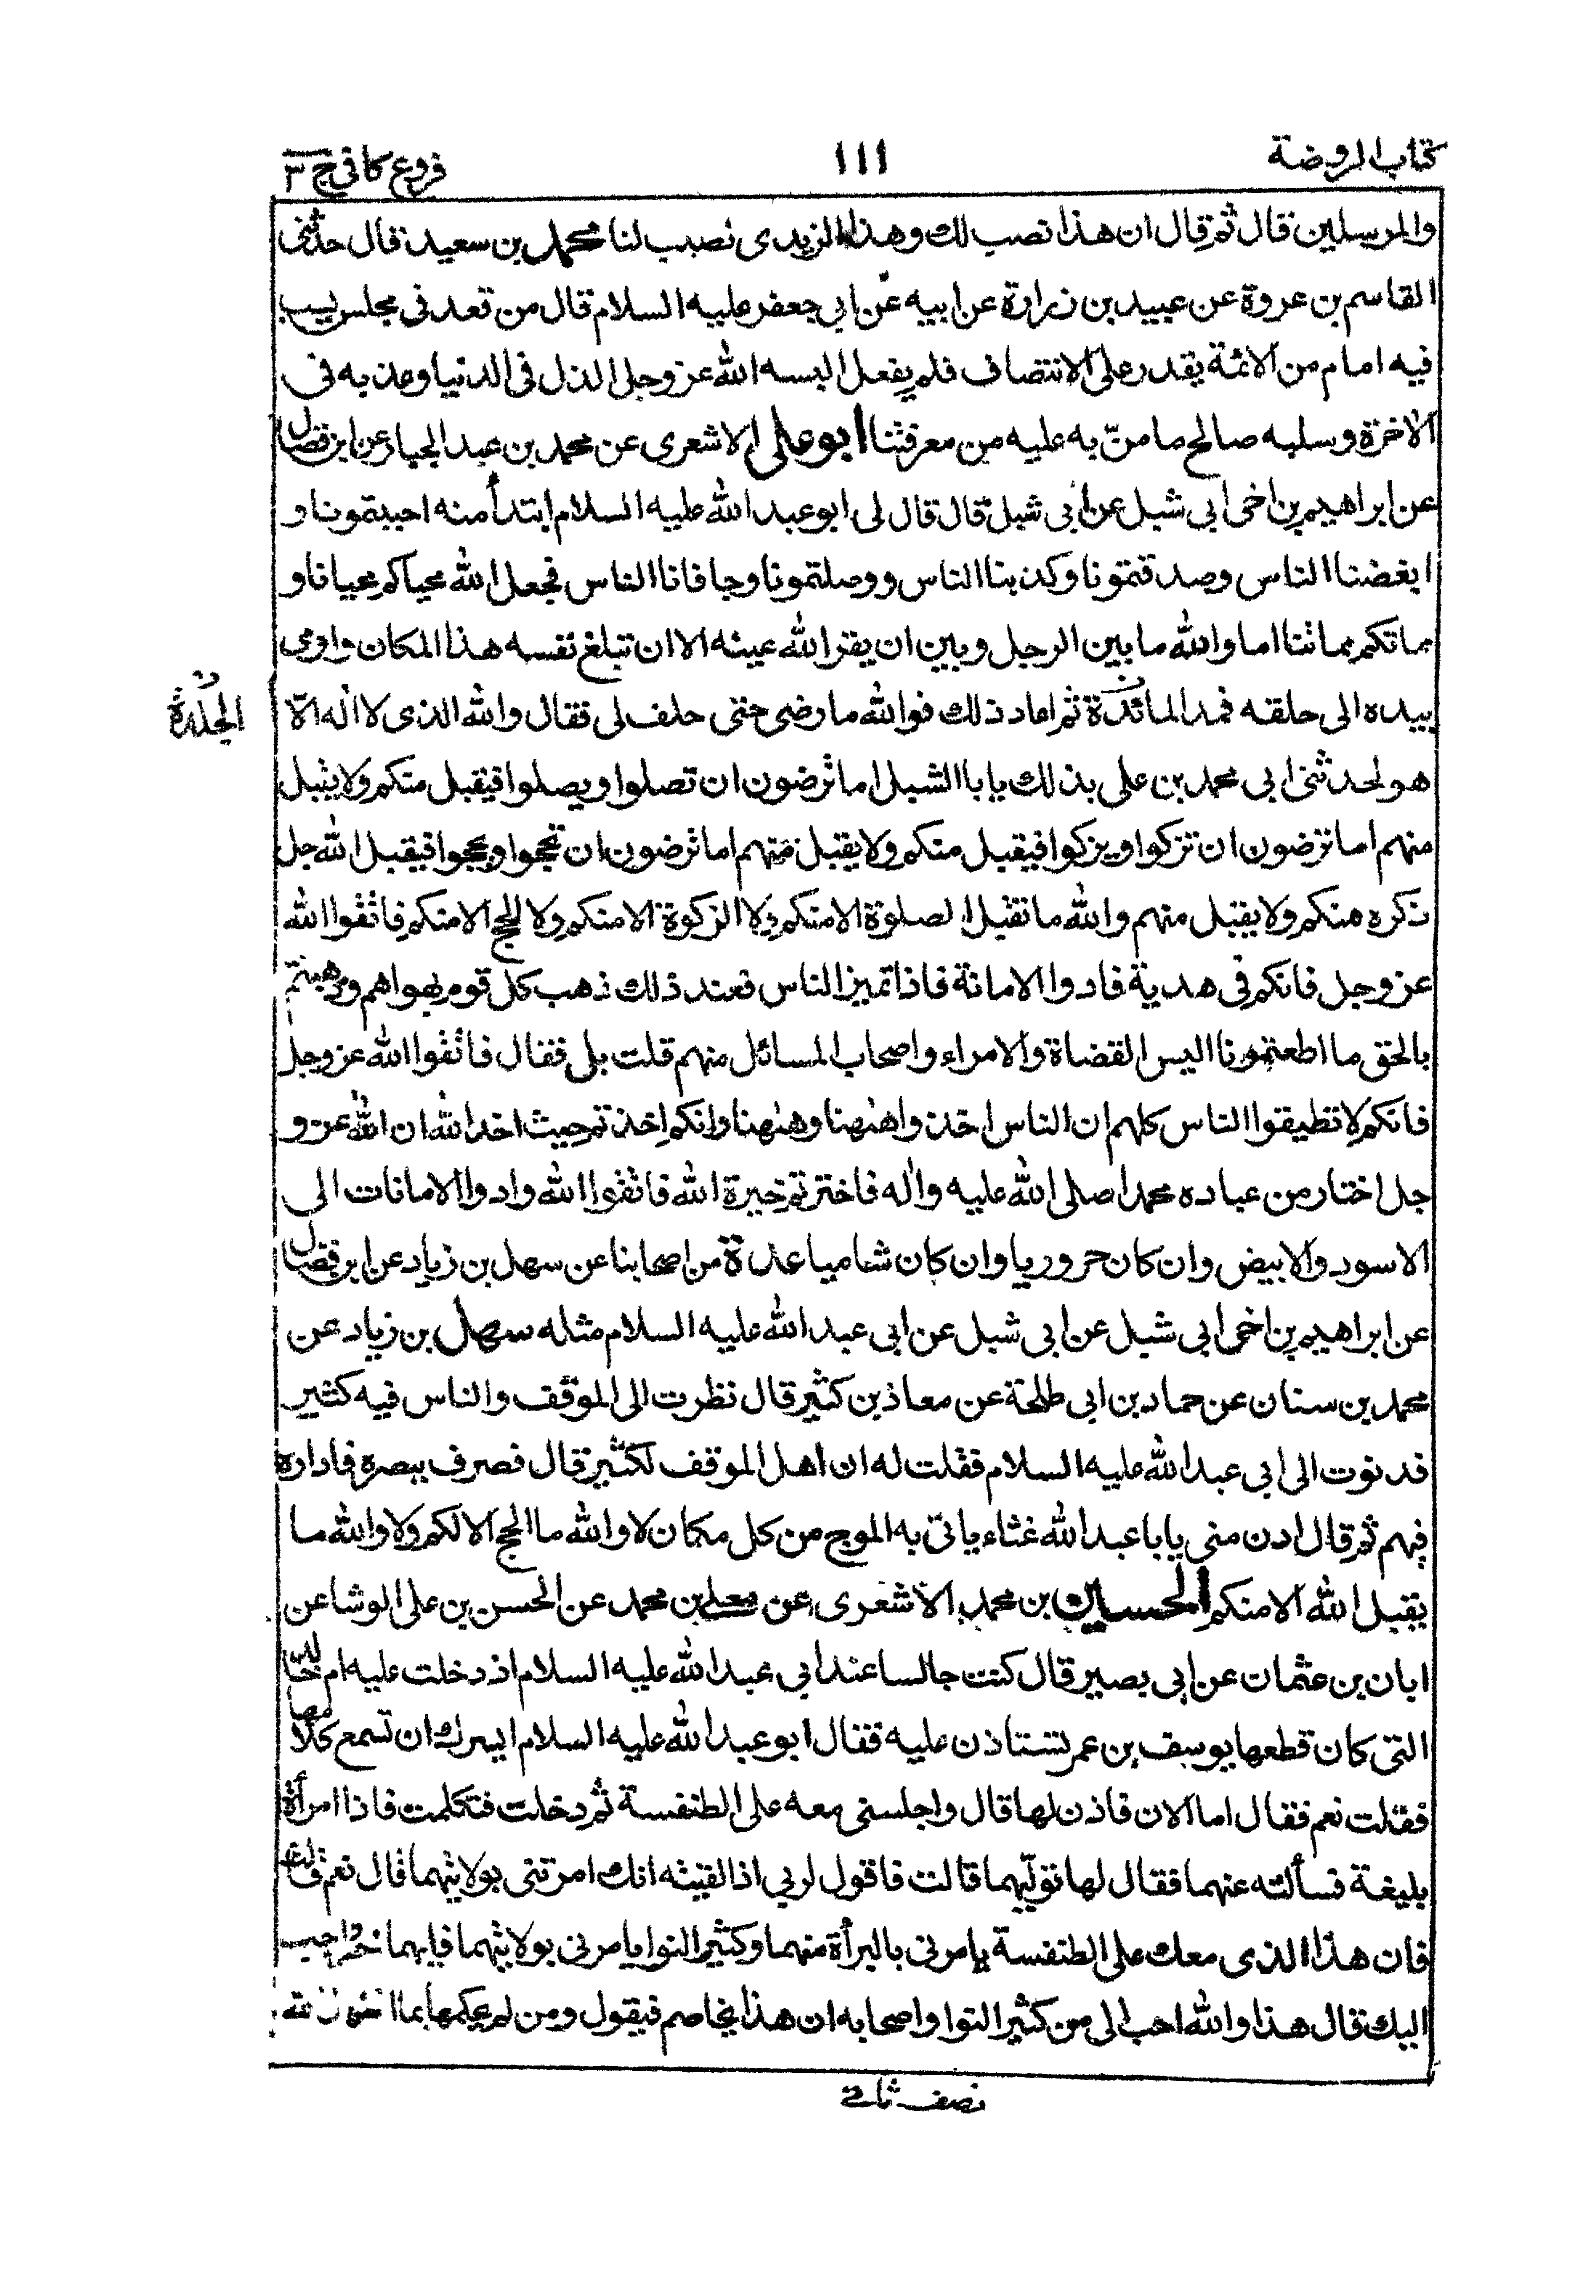 كتاب الروضة
١١١
فروع كافى ج ٣
والمرسلين قال ثم قال ان هذا نصب لك وهذا الزيدى نصب لنا محمد بن سعيد قال حدثنى
القاسم بن عروة عن عبيد بن زرارة عن ابيه عن ابي جعفر عليه السلام قال من قعد فى مجلس يسب
فيه امام من الائمة يقدر على الانتصاف فلم يفعل البسه الله عز وجل الذل فى الدنيا وعذبه فى
الاخرة وسلبه صالح ما منّ به عليه من معرفتنا ابو على الاشعرى عن محمد بن عبد الجبار عن ابن فضال
عن ابراهيم بن اخى ابي شبل عن ابي شبل قال قال لى ابو عبد الله عليه السلام ابتدأ منه احببتمونا و
ابغضنا الناس وصدقتمونا وكذبنا الناس ووصلتمونا وجافانا الناس فجعل الله محياكم محيانا و
مماتكم مماتنا اما والله ما بين الرجل وبين ان يقر الله عينه الا ان تبلغ نفسه هذا المكان واومى
بيده الى حلقه فمد المائدة ثم اعاد ذلك فوالله ما رضى حتى حلف لى فقال والله الذى لا اله الّا
الجلدة
هو لحدثنى ابي محمد بن على بذلك يابا الشبل اما ترضون ان تصلوا ويصلوا فيقبل منكم ولا يقبل
منهم اما ترضون ان تزكوا ويزكوا فيقبل منكم ولا يقبل منهم اما ترضون ان تحجوا ويحجوا فيقبل الله جل
ذكره منكم ولا يقبل منهم والله ما تقبل الصلوة الا منكم ولا الزكوة الا منكم ولا الحج الا منكم فاتقوا الله
عز وجل فانكم فى هدية فادوا الامانة فاذا تميز الناس فعند ذلك ذهب كل قوم بهواهم وذهبتم
بالحق ما اطعتمونا اليس القضاة والامراء واصحاب المسائل منهم قلت بلى فقال فاتقوا الله عز وجل
فانكم لا تطيقوا الناس كلهم ان الناس اخذوا هنهنا وهنهنا وانكم اخذتم حيث اخذ الله ان الله عز و
جل اختار من عباده محمدا صلى الله عليه واله فاخترتم خيرة الله فاتقوا الله وادوا الامانات الى
الاسود والابيض وان كان حروريا وان كان شاميا عدة من اصحابنا عن سهل بن زياد عن ابن فضال
عن ابراهيم بن اخى ابي شبل عن ابي شبل عن ابى عبد الله عليه السلام مثله سهل بن زياد عن
محمد بن سنان عن حماد بن ابى طلحة عن معاذ بن كثير قال نظرت الى الموقف والناس فيه كثير
فدنوت الى ابى عبد الله عليه السلام فقلت له ان اهل الموقف لكثير قال فصرف ببصره فاداره
فيهم ثم قال ادن منى يابا عبد الله غثاء ياتى به الموج من كل مكان لا والله ما الحج الا لكم ولا والله ما
يقبل الله الا منكم الحسين بن محمد الاشعرى عن معلى بن محمد عن الحسن بن على الوشا عن
ابان بن عثمان عن ابى بصير قال كنت جالسا عند ابى عبد الله عليه السلام اذ دخلت عليه ام خالد
التى كان قطعها يوسف بن عمر تستاذن عليه فقال ابو عبد الله عليه السلام ايسرك ان تسمع كلامها
فقلت نعم فقال اما الان فاذن لها قال واجلسنى معه على الطنفسة ثم دخلت فتكلمت فاذا امرأة
بليغة فسألته عنهما فقال لها توليهما قالت فاقول لربى اذا لقيته انك امرتنى بولايتهما قال نعم قالت
فان هذا الذى معك على الطنفسة يامرنى بالبرأة منهما وكثير النوا يامرنى بولايتهما فايهما خير واحب
اليك قال هذا والله احب الى من كثير النوا واصحابه ان هذا يخاصم فيقول ومن لم يحكم بما انزل الله
نصف ثانى